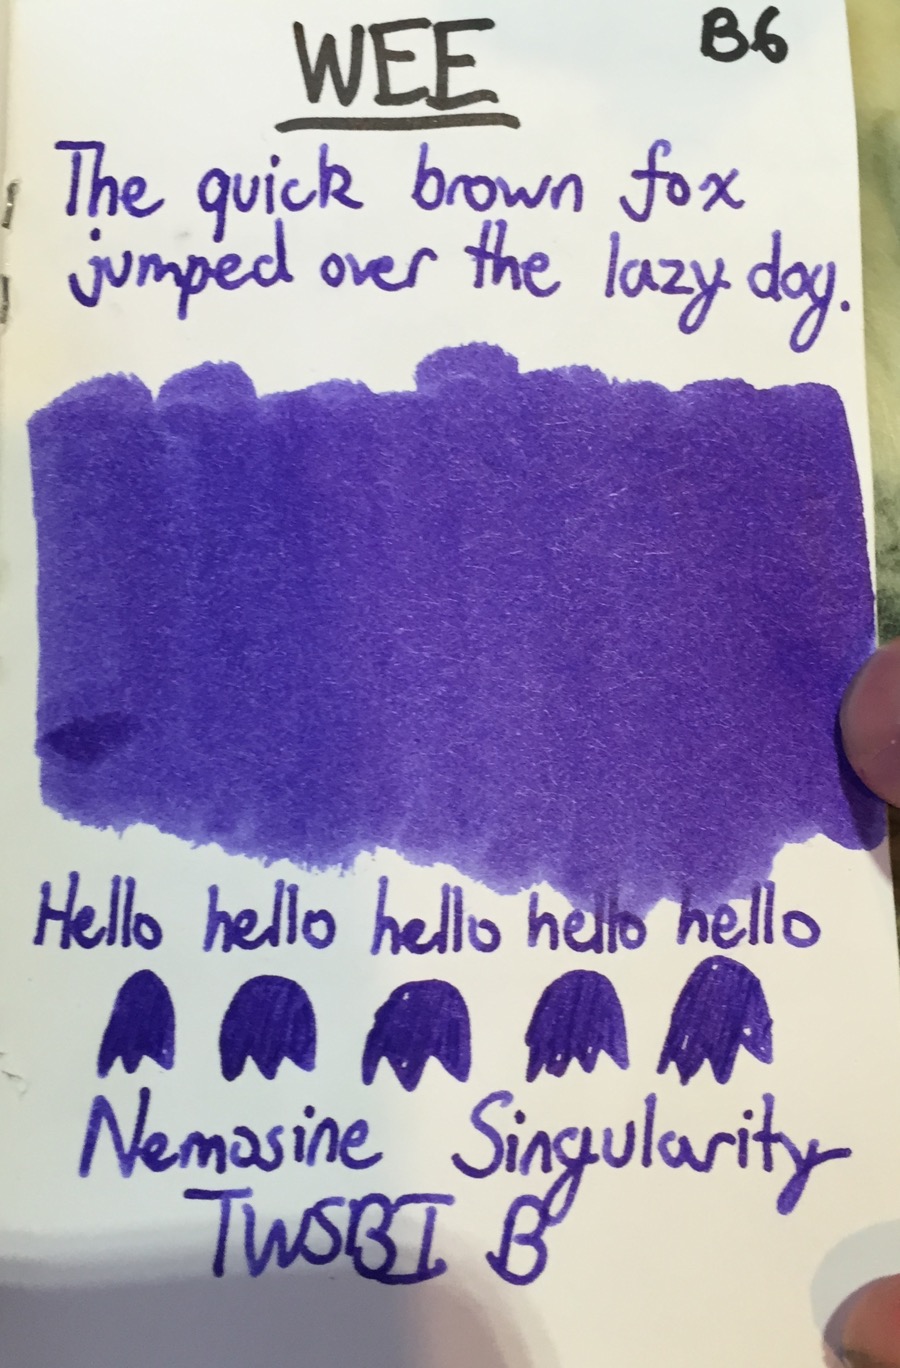 WEE
B6
The quick brown fox
jumped over the lazy dog.
Hello hello hello hello hello
Nemosine Singularity
TWSBI B